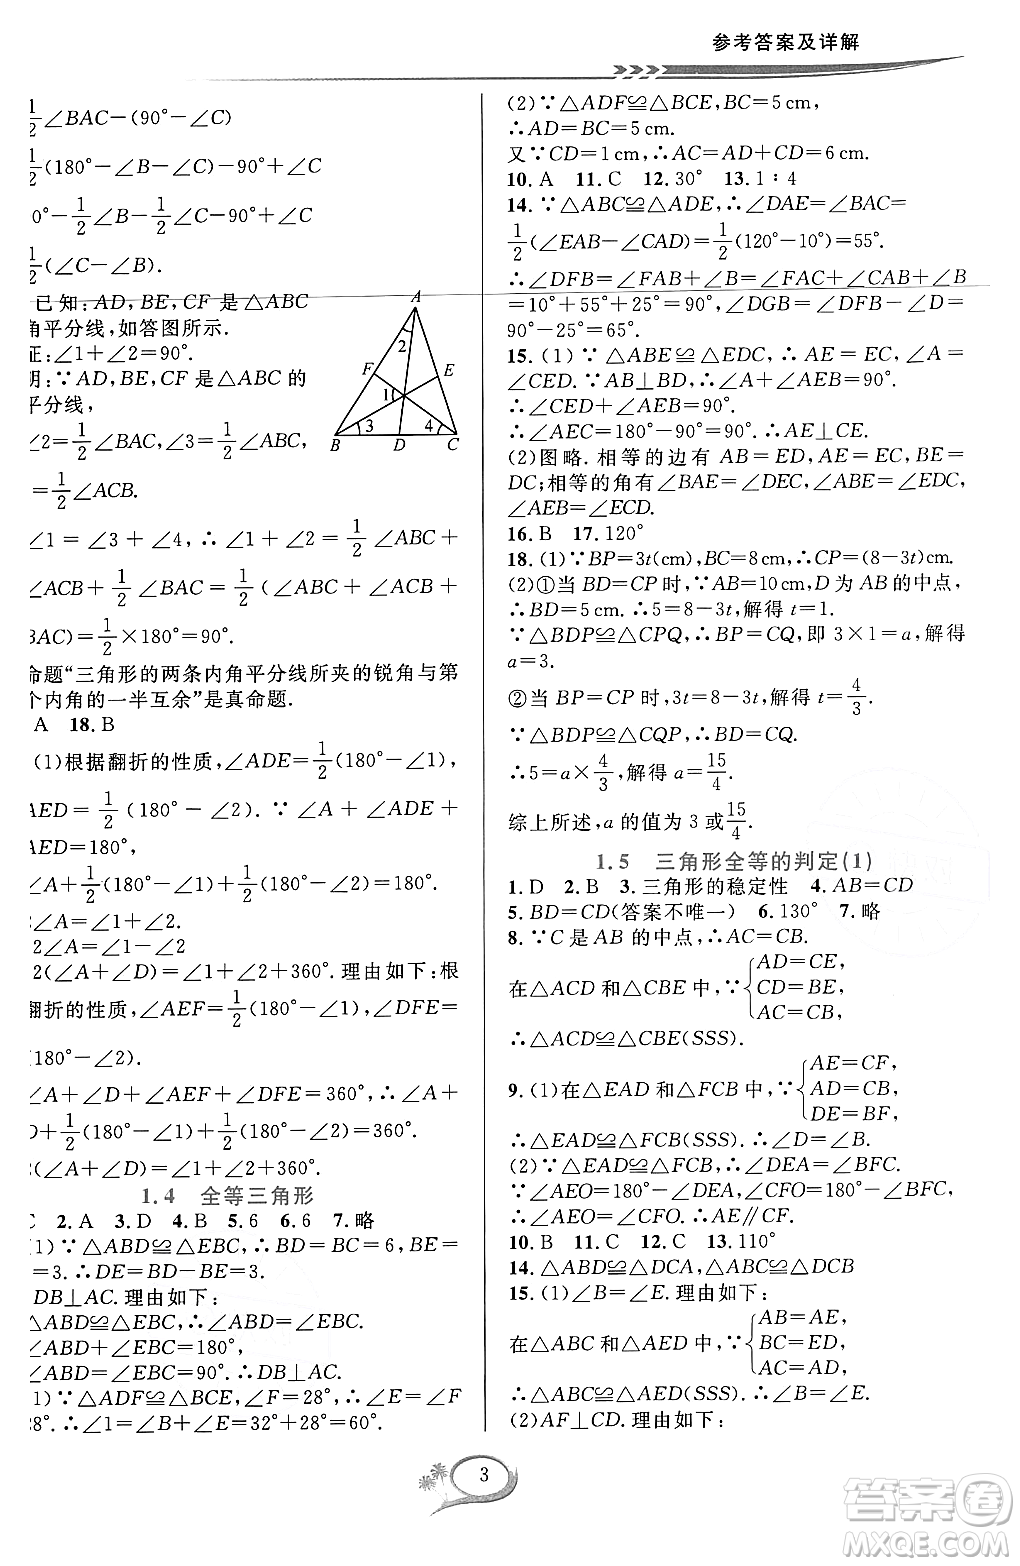 参考答案及详解
1/2∠BAC－(90°－∠C)
1/2(180°－∠B－∠C)－90°＋∠C
0°－1/2∠B－1/2∠C－90°＋∠C
1/2(∠C－∠B).
已知:AD,BE,CF 是△ABC
角平分线,如答图所示.
正:∠1＋∠2＝90°.
明:∵AD,BE,CF 是△ABC 的
平分线,
∠2＝1/2∠BAC,∠3＝1/2∠ABC,
＝1/2∠ACB.
∠1＝∠3＋∠4,∴∠1＋∠2＝1/2∠ABC＋
∠ACB＋1/2∠BAC＝1/2(∠ABC＋∠ACB＋
BAC)＝1/2×180°＝90°.
命题“三角形的两条内角平分线所夹的锐角与第
个内角的一半互余”是真命题.
A 18.B
(1)根据翻折的性质,∠ADE＝1/2(180°－∠1),
AED＝1/2(180°－∠2).∵∠A＋∠ADE＋
AED＝180°,
∠A＋1/2(180°－∠1)＋1/2(180°－∠2)＝180°.
2∠A＝∠1＋∠2.
2∠A＝∠1－∠2
2(∠A＋∠D)＝∠1＋∠2＋360°.理由如下:根
翻折的性质,∠AEF＝1/2(180°－∠1),∠DFE＝
(180°－∠2).
∠A＋∠D＋∠AEF＋∠DFE＝360°,∴∠A＋
D＋1/2(180°－∠1)＋1/2(180°－∠2)＝360°.
2(∠A＋∠D)＝∠1＋∠2＋360°.
1.4 全等三角形
C 2.A 3.D 4.B 5.6 6.6 7.略
(1)∵△ABD≌△EBC,∴BD＝BC＝6,BE＝
＝3.∴DE＝BD－BE＝3.
DB⊥AC.理由如下:
△ABD≌△EBC,∴∠ABD＝∠EBC.
∠ABD＋∠EBC＝180°,
∠ABD＝∠EBC＝90°.∴DB⊥AC.
(1)∵△ADF≌△BCE,∠F＝28°,∴∠E＝∠F
28°.∴∠1＝∠B＋∠E＝32°＋28°＝60°.
A
2
F
E
1
3
4
B
D
C
(2)∵△ADF≌△BCE,BC＝5 cm,
∴AD＝BC＝5 cm.
又∵CD＝1 cm,∴AC＝AD＋CD＝6 cm.
10.A 11.C 12.30° 13.1∶4
14.∵△ABC≌△ADE,∴∠DAE＝∠BAC＝
1/2(∠EAB－∠CAD)＝1/2(120°－10°)＝55°.
∴∠DFB＝∠FAB＋∠B＝∠FAC＋∠CAB＋∠B
＝10°＋55°＋25°＝90°,∠DGB＝∠DFB－∠D＝
90°－25°＝65°.
15.(1)∵△ABE≌△EDC,∴AE＝EC,∠A＝
∠CED.∵AB⊥BD,∴∠A＋∠AEB＝90°.
∴∠CED＋∠AEB＝90°.
∴∠AEC＝180°－90°＝90°.∴AE⊥CE.
(2)图略.相等的边有 AB＝ED,AE＝EC,BE＝
DC;相等的角有∠BAE＝∠DEC,∠ABE＝∠EDC,
∠AEB＝∠ECD.
16.B 17.120°
18.(1)∵BP＝3t(cm),BC＝8 cm,∴CP＝(8－3t)cm.
(2)①当 BD＝CP 时,∵AB＝10 cm,D 为 AB 的中点,
∴BD＝5 cm.∴5＝8－3t,解得 t＝1.
∵△BDP≌△CPQ,∴BP＝CQ,即 3×1＝a,解得
a＝3.
②当 BP＝CP 时,3t＝8－3t,解得 t＝4/3.
∵△BDP≌△CQP,∴BD＝CQ.
∴5＝a×4/3,解得 a＝15/4.
综上所述,a 的值为 3 或15/4.
1.5 三角形全等的判定(1)
1.D 2.B 3.三角形的稳定性 4.AB＝CD
5.BD＝CD(答案不唯一) 6.130° 7.略
8.∵C 是 AB 的中点,∴AC＝CB.
在△ACD 和△CBE 中,∵{AD＝CE, CD＝BE, AC＝CB,
∴△ACD≌△CBE(SSS).
9.(1)在△EAD 和△FCB 中,∵{AE＝CF, AD＝CB, DE＝BF,
∴△EAD≌△FCB(SSS).∴∠D＝∠B.
(2)∵△EAD≌△FCB,∴∠DEA＝∠BFC.
∵∠AEO＝180°－∠DEA,∠CFO＝180°－∠BFC,
∴∠AEO＝∠CFO.∴AE∥CF.
10.B 11.C 12.C 13.110°
14.△ABD≌△DCA,△ABC≌△DCB
15.(1)∠B＝∠E.理由如下:
在△ABC 和△AED 中,∵{AB＝AE, BC＝ED, AC＝AD,
∴△ABC≌△AED(SSS).∴∠B＝∠E.
(2)AF⊥CD.理由如下:
3
答案圈
MXQE.COM